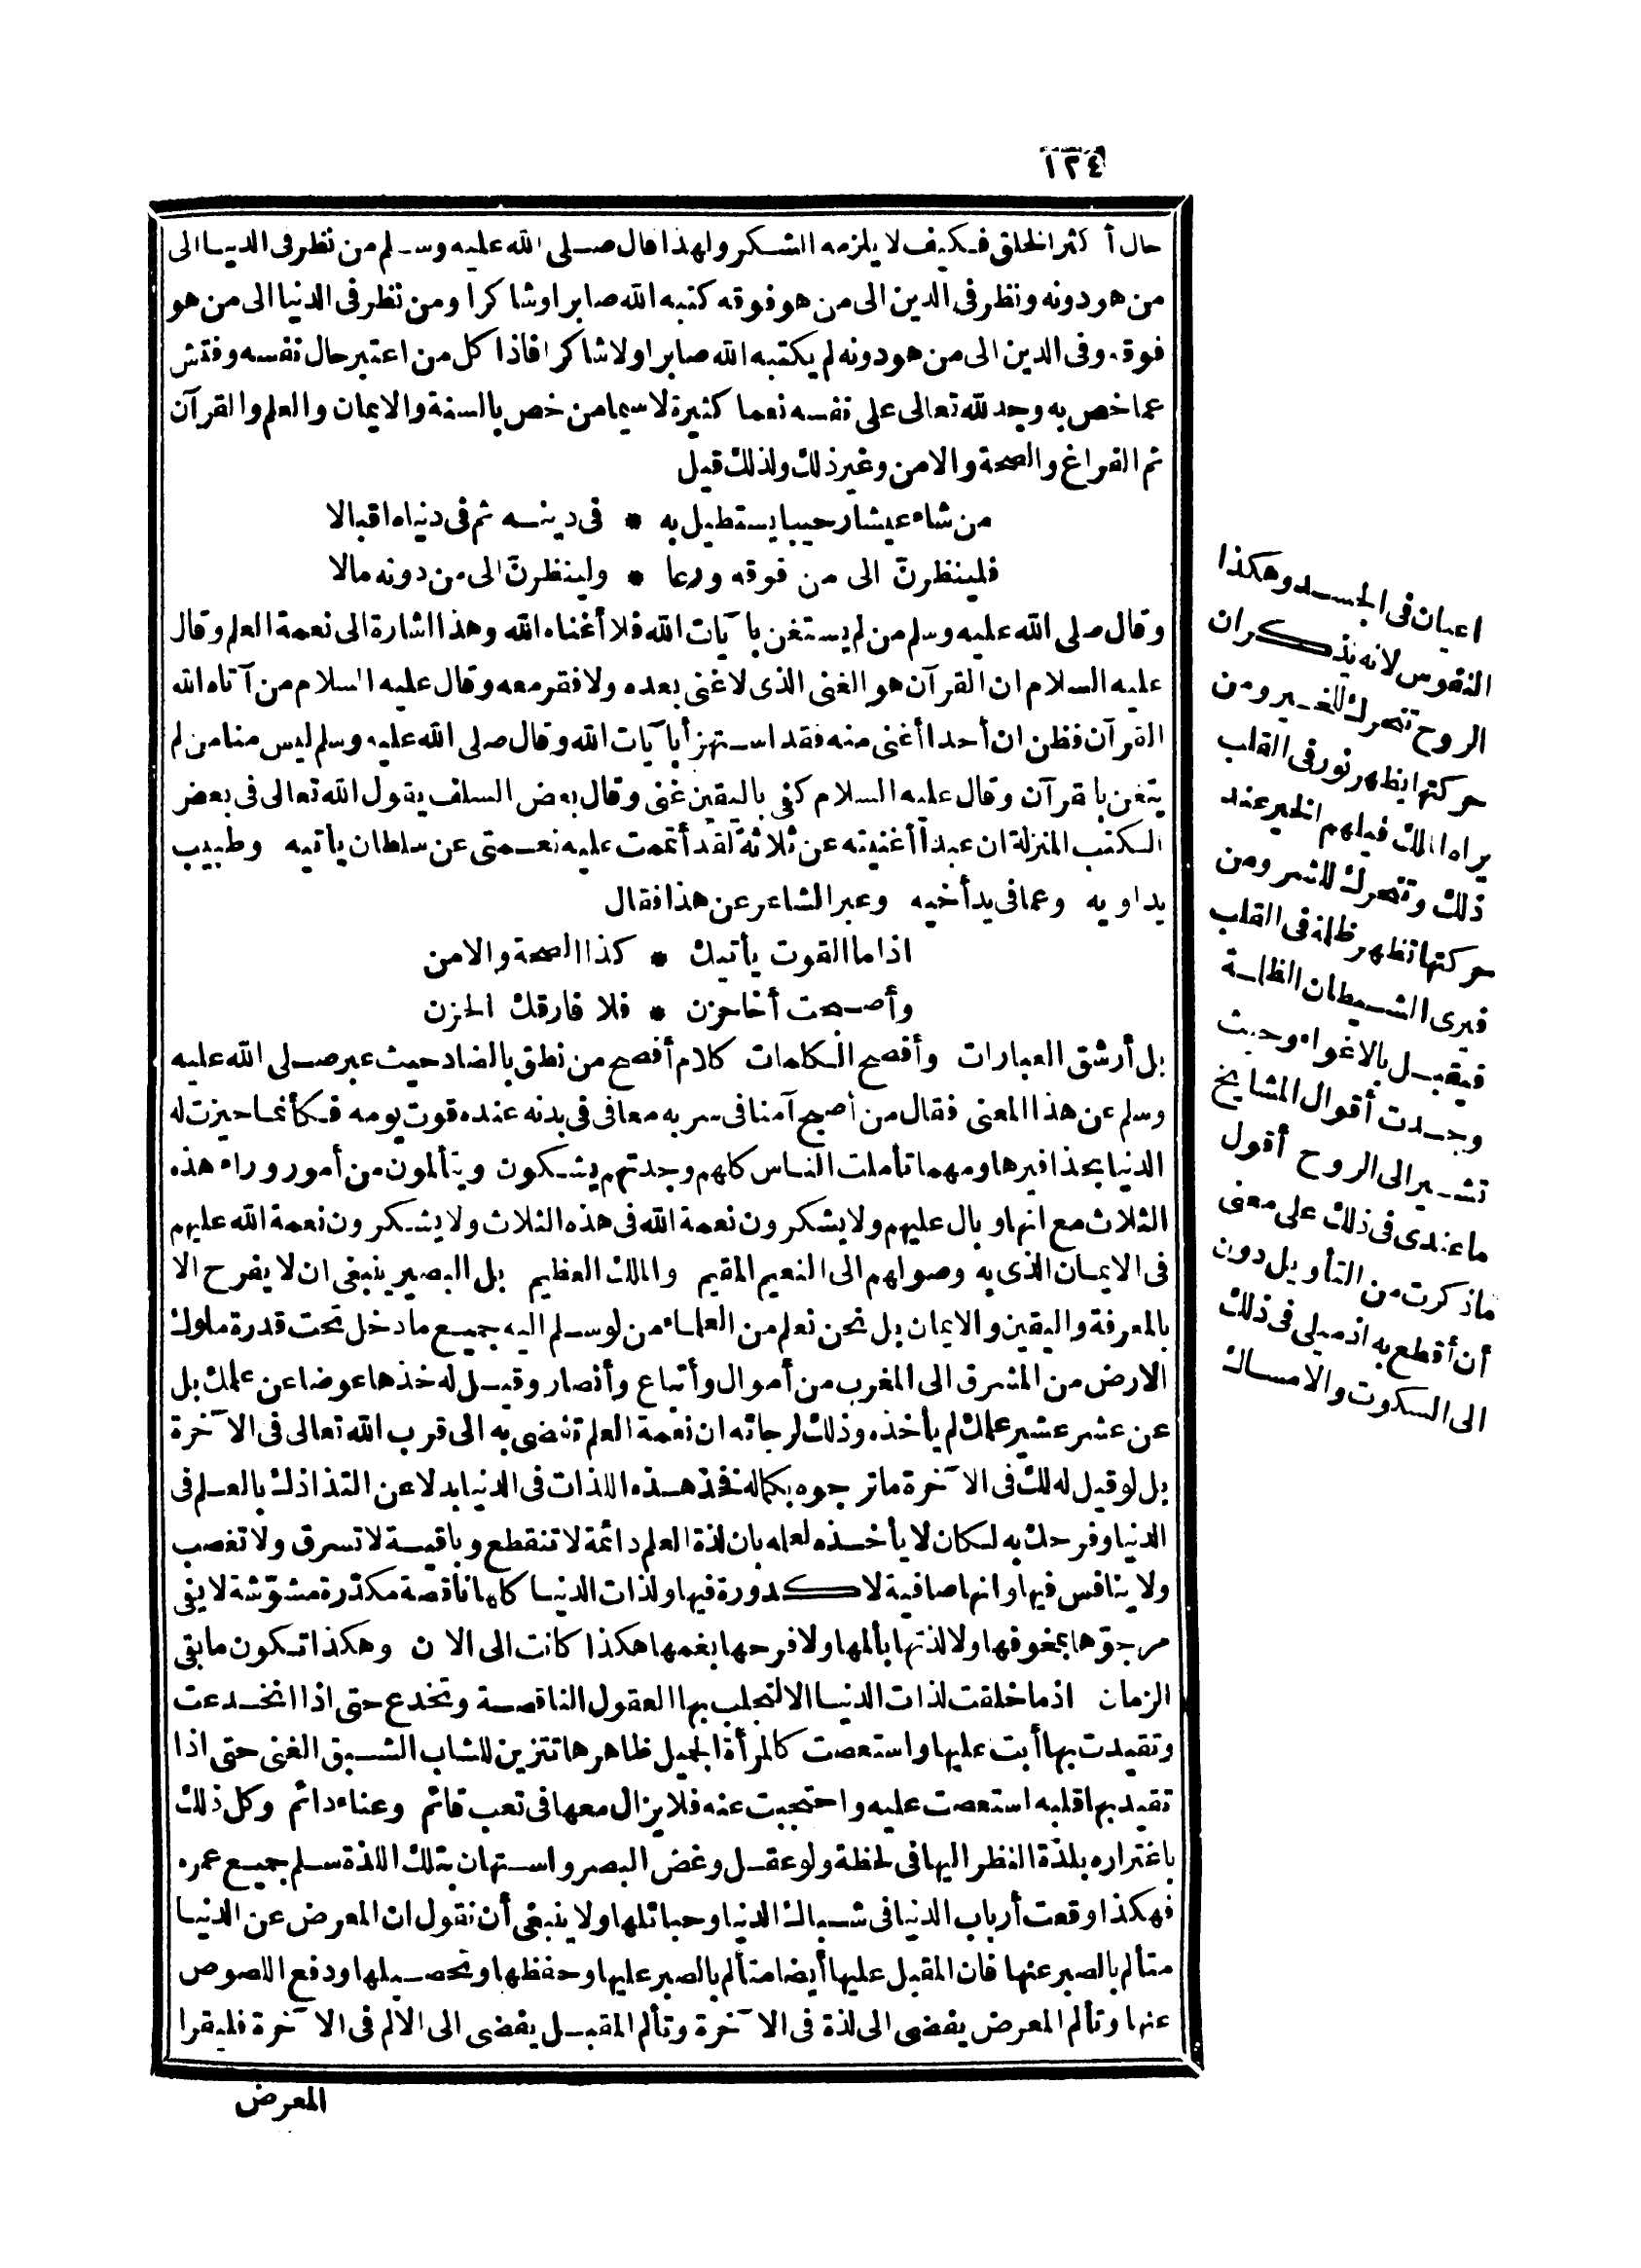 ١٢٤
حال أكثر الخلق فكيف لا يلزمه الشكر ولهذا قال صلى الله عليه وسلم من نظر فى الدنيا الى
من هو دونه ونظر فى الدين الى من هو فوقه كتبه الله صابرا وشاكرا ومن نظر فى الدنيا الى من هو
فوقه وفى الدين الى من هو دونه لم يكتبه الله صابرا ولا شاكرا فاذا كل من اعتبر حال نفسه وفتش
عما خص به وجد لله تعالى على نفسه نعما كثيرة لا سيما من خص بالسنة والايمان والعلم والقرآن
ثم الفراغ والصحة والامن وغير ذلك ولذلك قيل
من شاء عيشا رحيبا يستطيل به * فى دينه ثم فى دنياه اقبالا
فلينظرنّ الى من فوقه ورعا * ولينظرنّ الى من دونه مالا
وقال صلى الله عليه وسلم من لم يستغن بآيات الله فلا أغناه الله وهذا اشارة الى نعمة العلم وقال
عليه السلام ان القرآن هو الغنى الذى لا غنى بعده ولا فقر معه وقال عليه السلام من آتاه الله
القرآن فظن ان أحدا أغنى منه فقد استهزأ بآيات الله وقال صلى الله عليه وسلم ليس منا من لم
يتغن بالقرآن وقال عليه السلام كفى باليقين غنى وقال بعض السلف يقول الله تعالى فى بعض
الكتب المنزلة ان عبدا أغنيته عن ثلاثة لقد أتممت عليه نعمتى عن سلطان يأتيه وطبيب
يداويه وعما فى يد أخيه وعبر الشاعر عن هذا فقال
اذا ما القوت يأتيك * كذا الصحة والامن
وأصبحت أخا حزن * فلا فارقك الحزن
بل أرشق العبارات وأفصح الكلمات كلام أفصح من نطق بالضاد حيث عبر صلى الله عليه
وسلم عن هذا المعنى فقال من أصبح آمنا فى سربه معافى فى بدنه عنده قوت يومه فكأنما حيزت له
الدنيا بحذافيرها ومهما تأملت الناس كلهم وجدتهم يشكون ويتألمون من أمور وراء هذه
الثلاث مع انها وبال عليهم ولا يشكرون نعمة الله فى هذه الثلاث ولا يشكرون نعمة الله عليهم
فى الايمان الذى به وصولهم الى النعيم المقيم والملك العظيم بل البصير ينبغى ان لا يفرح الا
بالمعرفة واليقين والايمان بل نحن نعلم من العلماء من لو سلم اليه جميع ما دخل تحت قدرة ملوك
الارض من المشرق الى المغرب من أموال وأتباع وأنصار وقيل له خذها عوضا عن علمك بل
عن عشر عشير علمك لم يأخذه وذلك لرجائه ان نعمة العلم تفضى به الى قرب الله تعالى فى الآخرة
بل لو قيل له لك فى الآخرة ما ترجوه بكماله فخذ هذه اللذات فى الدنيا بدلا عن التذاذك بالعلم فى
الدنيا وفرحك به لكان لا يأخذه لعلمه بان لذة العلم دائمة لا تنقطع وباقية لا تسرق ولا تغصب
ولا ينافس فيها وانها صافية لا كدورة فيها ولذات الدنيا كلها ناقصة مكدّرة مشوّشة لا يفى
مرجوّها بمخوفها ولا لذتها بألمها ولا فرحها بغمها هكذا كانت الى الآن وهكذا تكون ما بقى
الزمان اذ ما خلقت لذات الدنيا الا لتجلب بها العقول الناقصة وتخدع حتى اذا انخدعت
وتقيدت بها أبت عليها واستعصت كالمرأة الجميل ظاهرها تتزين للشاب الشبق الغنى حتى اذا
تقيد بها قلبه استعصت عليه واحتجبت عنه فلا يزال معها فى تعب قائم وعناء دائم وكل ذلك
باغتراره بلذة النظر اليها فى لحظة ولو عقل وغض البصر واستهان بتلك اللذة سلم جميع عمره
فهكذا وقعت أرباب الدنيا فى شباك الدنيا وحبائلها ولا ينبغى أن نقول ان المعرض عن الدنيا
متألم بالصبر عنها فان المقبل عليها أيضا متألم بالصبر عليها وحفظها وتحصيلها ودفع اللصوص
عنها وتألم المعرض يفضى الى لذة فى الآخرة وتألم المقبل يفضى الى الالم فى الآخرة فليقرا
المعرض
اعيان فى الجسد وهكذا
النفوس لانه يذكر ان
الروح تتحرك للخير ومن
حركتها يظهر نور فى القلب
يراه الملك فيلهم الخير عند
ذلك وتتحرك للشر ومن
حركتها تظهر ظلمة فى القلب
فيرى الشيطان الظلمة
فيقبل بالاغواء وحيث
وجدت أقوال المشايخ
تشير الى الروح أقول
ما عندى فى ذلك على معنى
ما ذكرت من التأويل دون
أن أقطع به اذ ميلى فى ذلك
الى السكوت والامساك